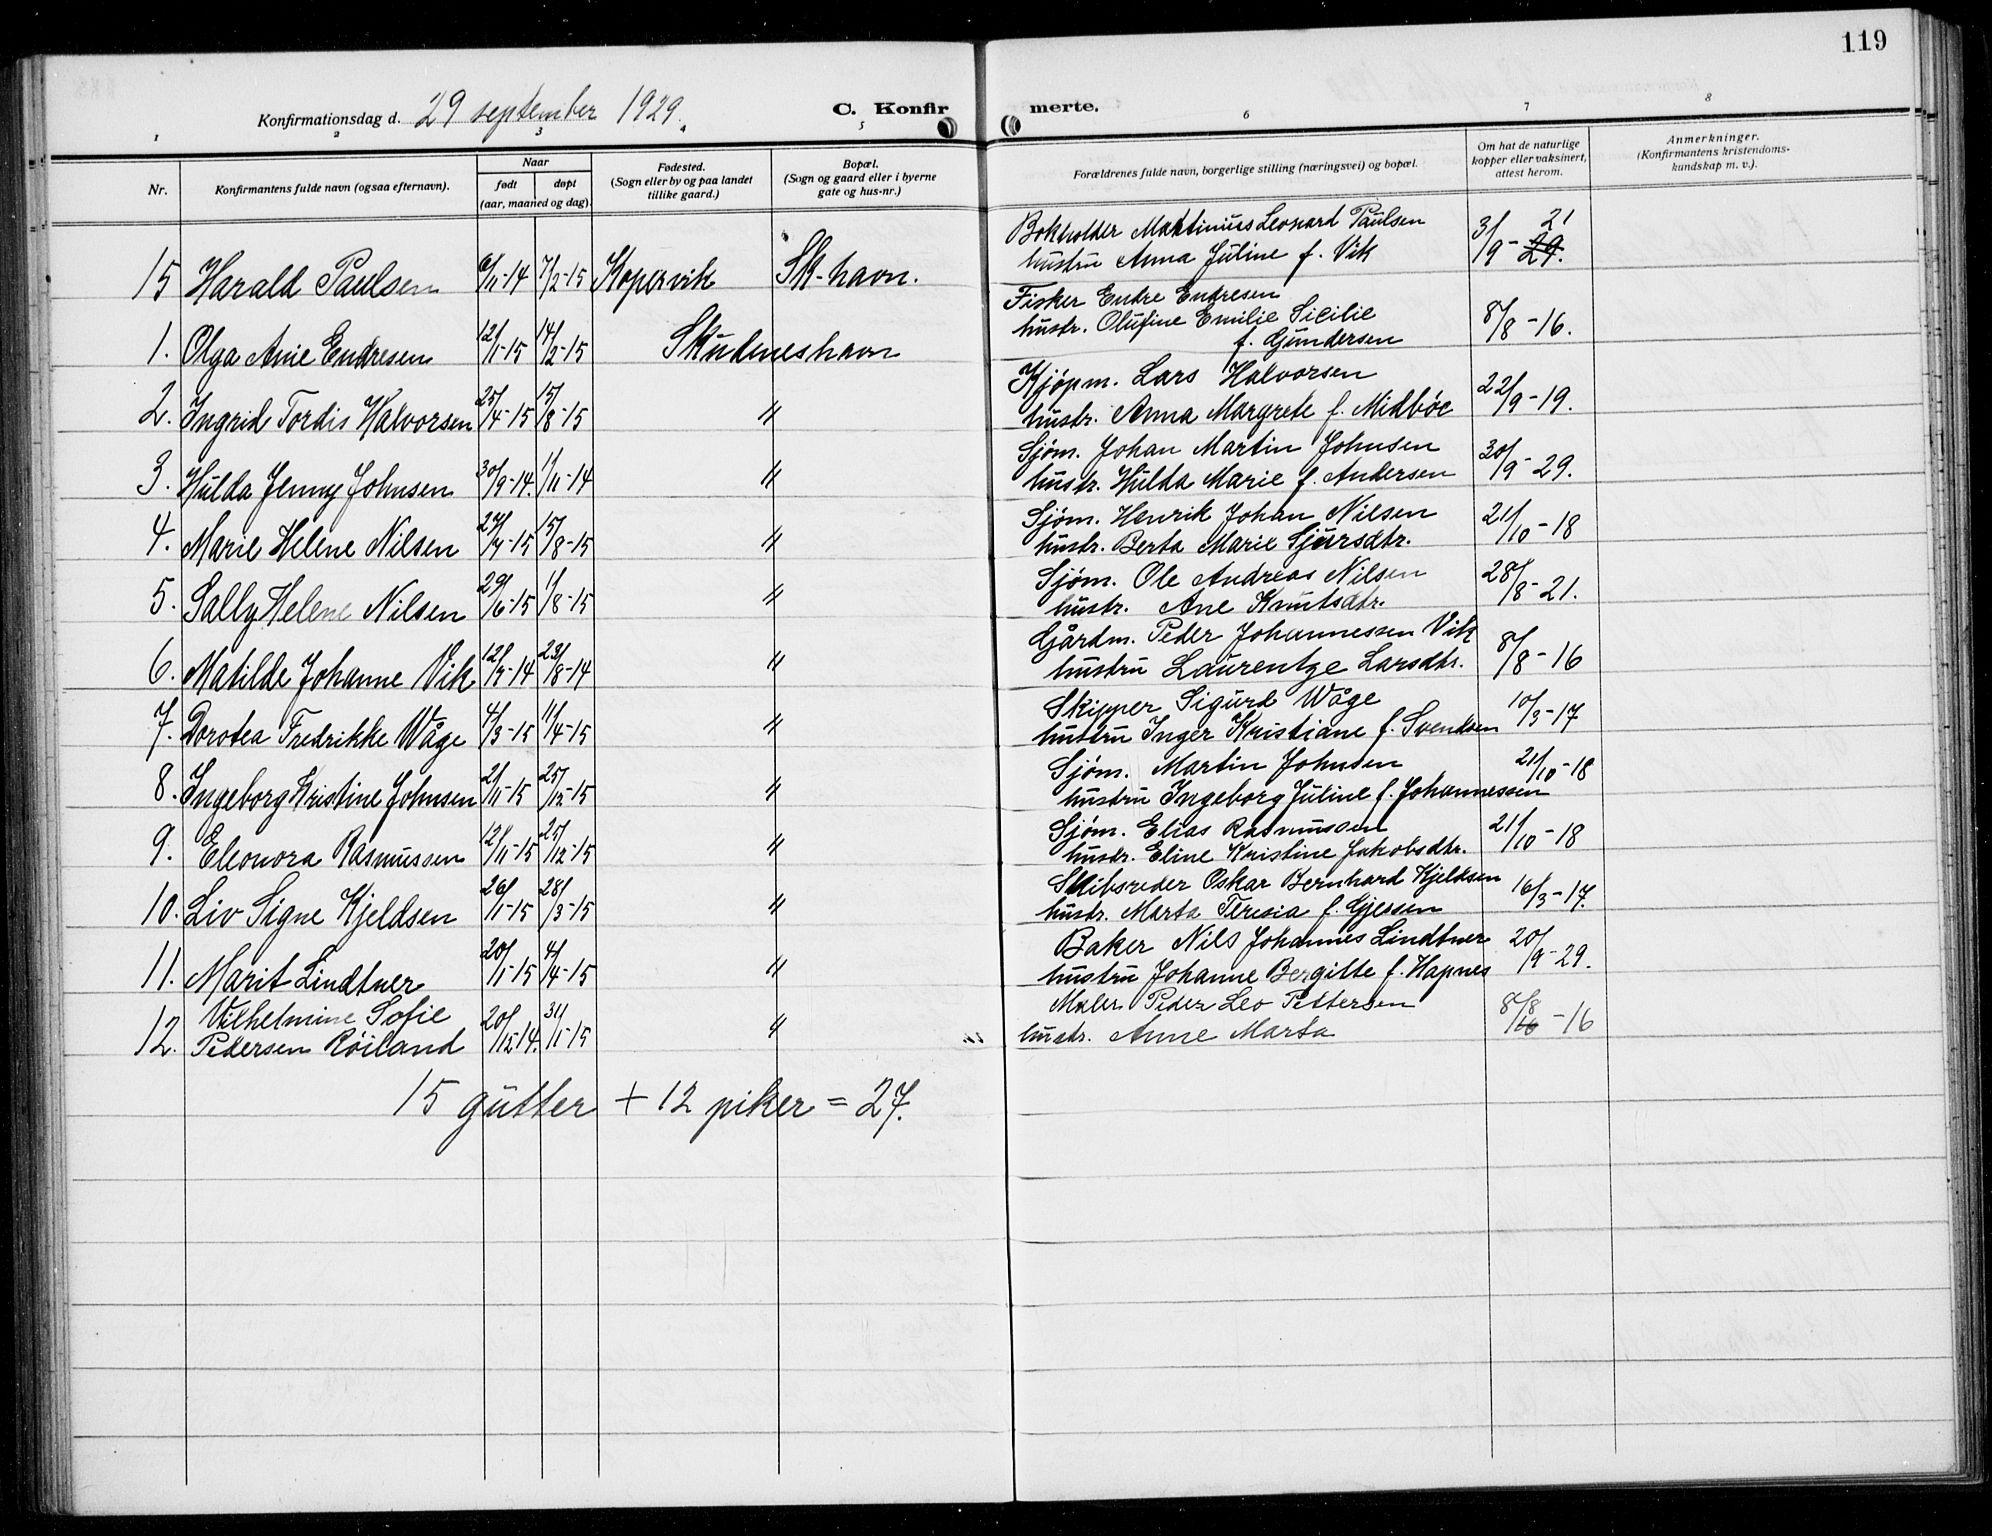 119
Konfirmationsdag d. 29 september 1929.
C. Konfirmerte.
1 2 3 4 5 6 7 8
Nr.
Konfirmantens fulde navn (ogsaa efternavn).
Naar
født
døpt
(aar, maaned og dag).
Fødested.
(Sogn eller by og paa landet
tillike gaard.)
Bopæl.
(Sogn og gaard eller i byerne
gate og hus-nr.)
Forældrenes fulde navn, borgerlige stilling (næringsvei) og bopæl.
Om hat de naturlige
kopper eller vaksinert,
attest herom.
Anmerkninger.
(Konfirmantens kristendoms-
kundskap m. v.).
15 Harald Paulsen 6/11-14 7/2-15 Kopervik Sk-havn. Bokholder Martinius Leonard Paulsen 3/9-29. 21
hustru Anna Juline f. Vik
1. Olga Anie Endresen 12/1-15 14/2-15 Skudeneshavn Fisker Endre Endresen 8/8-16.
hustr. Olufine Emilie Sicilie
f. Gundersen
2. Ingrid Tordis Halvorsen 25/4-15 15/8-15 " Kjøpm. Lars Halvorsen 22/9-19.
hustr. Anna Margrete f. Midbøe
3. Hulda Jenny Johnsen 30/9-14. 1/11-14 " Sjøm. Johan Martin Johnsen 30/9-29.
hustr. Hulda Marie f. Andersen
4. Marie Helene Nilsen 15/8-15 " Sjøm. Henrik Johan Nilsen 21/10-18
hustr. Berta Marie Sjursdtr.
5. Sally Helene Nilsen 29/6-15 1/8-15 " Sjøm. Ole Andreas Nilsen 28/8-21.
hustr. Ane Knutsdtr.
6. Matilde Johanne Vik 12/7-14 23/8-14 " Gårdm. Peder Johannessen Vik 8/8-16
hustru Laurentze Larsdtr.
7. Dorotea Fredrikke Wåge 4/3-15 11/4-15 " Skipper Sigurd Wåge 10/3-17
hustru Inger Kristiane f. Svendsen
8. Ingeborg Kristine Johnsen 2/11-15 25/12-15 " Sjøm. Martin Johnsen 21/10-18
hustru Ingeborg Juline f. Johannessen
9. Eleonora Rasmussen 12/11-15 25/12-15 " Sjøm. Elias Rasmussen 21/10-18
hustr. Eline Kristine Jakobsdtr.
10. Liv Signe Kjeldsen 26/1-15 28/3-15 " Skibsreder Oskar Bernhard Kjeldsen 16/3-17.
hustr. Marta Teresia f. Gjessen
11. Marit Lindtner 20/1-15 4/4-15 " Baker Nils Johannes Lindtner 20/9-29.
hustru Johanne Bergitte f. Hapnes
Vilhelmine Sofie
12. Pedersen Røiland 20/12 14. 31/1-15 " Maler Peder Leo Pettersen 8/8-16
hustr. Anne Marta
15 gutter + 12 piker = 27.